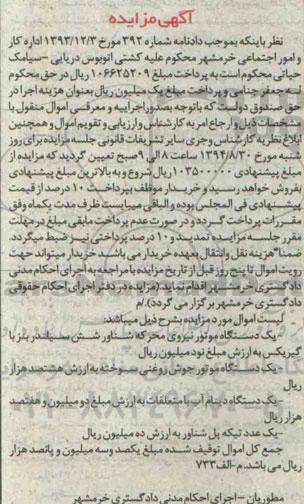 آگهی مزایده
نظر باینکه بموجب دادنامه شماره ۳۹۲ مورخ ۱۳۹۳/۱۲/۳ اداره کار
و امور اجتماعی خرمشهر محکوم علیه کشتی اتوبوس دریایی -سیامک
حیاتی محکوم است به پرداخت مبلغ ۱۰۶۶۲۵۲۰۹ ریال در حق محکوم
له جعفر جنامی و پرداخت مبلغ یک میلیون ریال بعنوان هزینه اجرا در
حق صندوق دولت که باتوجه بصدور اجراییه و معرفی اموال منقول با
مشخصات ذیل و ارجاع امر به کارشناس وارزیابی و تقویم اموال و همچنین
ابلاغ نظریه کارشناس و جری سایر تشریفات قانونی جلسه مزایده برای روز
شنبه مورخ ۱۳۹۴/۸/۳۰ ساعت ۸ الی ۹ صبح تعیین گردید که مزایده از
مبلغ پیشنهادی ۱۰۳۵۰۰۰۰۰ ریال شروع و به بالاترین مبلغ پیشنهادی
بفروش خواهد رسید و خریدار موظف بپرداخت ۱۰ درصد از قیمت
پیشنهادی فی المجلس بوده و الباقی میبایست ظرف مدت یکماه وفق
مقررات پرداخت گردد و در صورت عدم پرداخت مابقی مبلغ در مهلت
مقرر جلسه مزایده تمدید و ۱۰ درصد پرداختی نیز ضبط میگردد
ضمنا"هزینه نقل و انتقال بعهده خریدار می باشد. خریدار میتواند جهت
رویت اموال تا پنج روز قبل از تاریخ مزایده با مراجعه به اجرای احکام مدنی
دادگستری خرمشهر اقدام نماید.(مزایده در دفتر اجرای احکام حقوقی
دادگستری خرمشهر برگزار می گردد)./م
لیست اموال مورد مزایده بشرح ذیل میباشد:
-یک دستگاه موتور نیروی محرکه شناور شش سیلندر بنز با
گیربکس به ارزش مبلغ نود میلیون ریال
-یک دستگاه موتور جوش روغنی سوخته به ارزش هشتصد هزار
ریال
-یک دستگاه دینام آب با متعلقات به ارزش مبلغ دو میلیون و هفتصد
هزار ریال
-یک عدد تیکه پل شناور به ارزش ده میلیون ریال
جمع کل اموال توقیف شده مبلغ یکصد وسه میلیون و پانصد هزار
ریال می باشد. م-الف ۷۳۳
مطوریان -اجرای احکام مدنی دادگستری خرمشهر